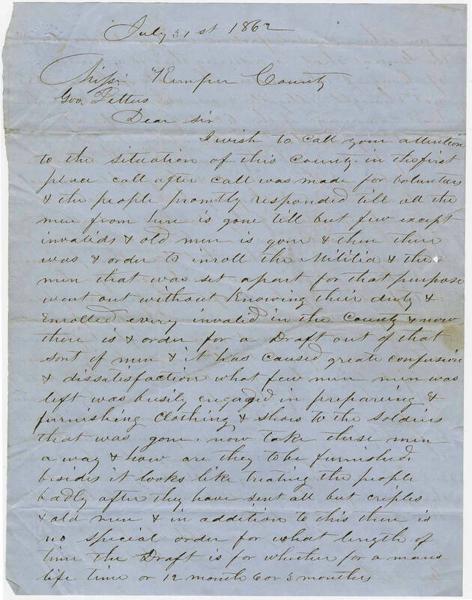 July 31st 1862
Missi Kemper County
Gov. Pettus
Dear Sir
I wish to call your attention
to the situation of this County in the first
place call after call was made for volunteers
& the people promptly responded till all the
men from here is gone till but few except
invalids & old men is gone & then there
was & order to enroll the Militia & the
men that was set apart for that purpose
went out without knowing their duty &
Enrolled every invalid in the County & now
there is & order for a Draft out of that
sort of men & it has caused great confusion
& dissatisfaction what few men men was
left was busily engaged in preparing &
furnishing clothing & shoes to the soldiers
that was gone. now take these men
a way & how are they to be furnished,
besides it looks like treating the people
badly after they have sent all but criples
& old men & in addition to this there is
no special order for what length of
time the Draft is for whether for a mans
life time or 12 month 6 or 3 months